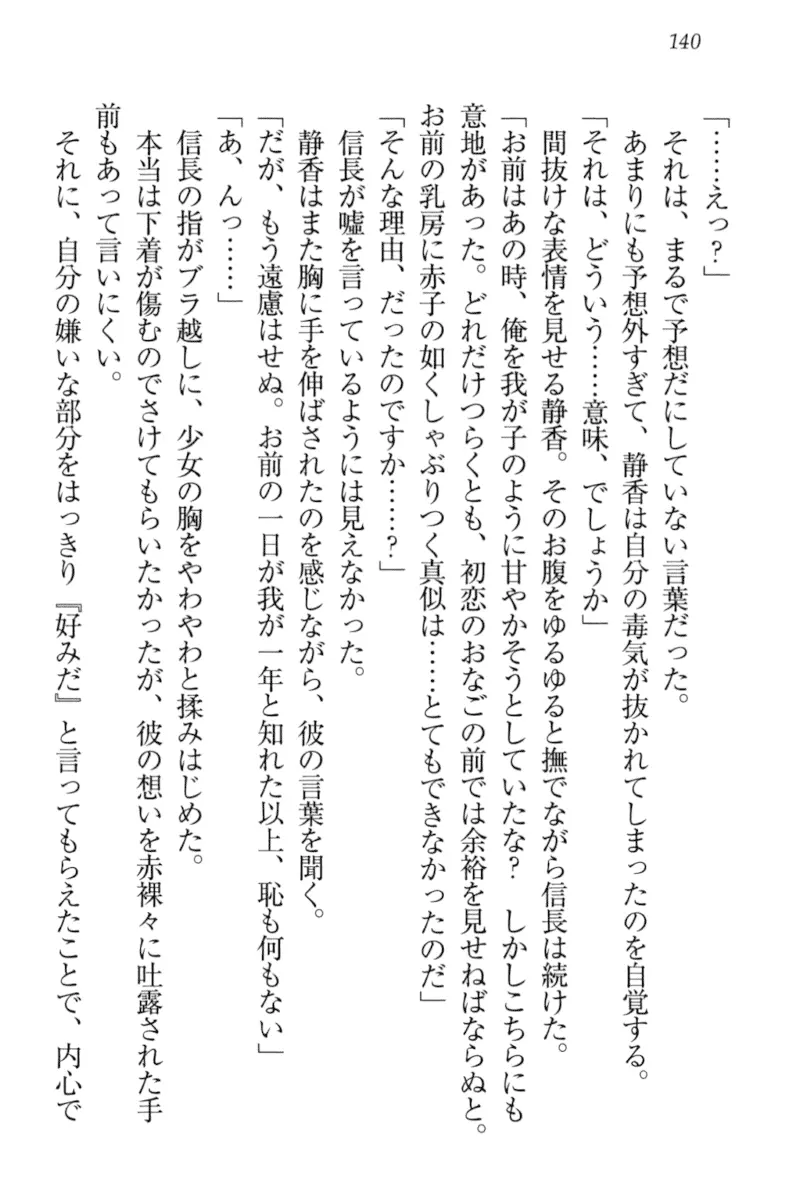 140
「……えっ？」
それは、まるで予想だにしていない言葉だった。
あまりにも予想外すぎて、静香は自分の毒気が抜かれてしまったのを自覚する。
「それは、どういう……意味、でしょうか」
間抜けな表情を見せる静香。そのお腹をゆるゆると撫でながら信長は続けた。
「お前はあの時、俺を我が子のように甘やかそうとしていたな？　しかしこちらにも
意地があった。どれだけつらくとも、初恋のおなごの前では余裕を見せねばならぬと。
お前の乳房に赤子の如くしゃぶりつく真似は……とてもできなかったのだ」
「そんな理由、だったのですか……？」
信長が嘘を言っているようには見えなかった。
静香はまた胸に手を伸ばされたのを感じながら、彼の言葉を聞く。
「だが、もう遠慮はせぬ。お前の一日が我が一年と知れた以上、恥も何もない」
「あ、んっ……」
信長の指がブラ越しに、少女の胸をやわやわと揉みはじめた。
本当は下着が傷むのでさけてもらいたかったが、彼の想いを赤裸々に吐露された手
前もあって言いにくい。
それに、自分の嫌いな部分をはっきり『好みだ』と言ってもらえたことで、内心で